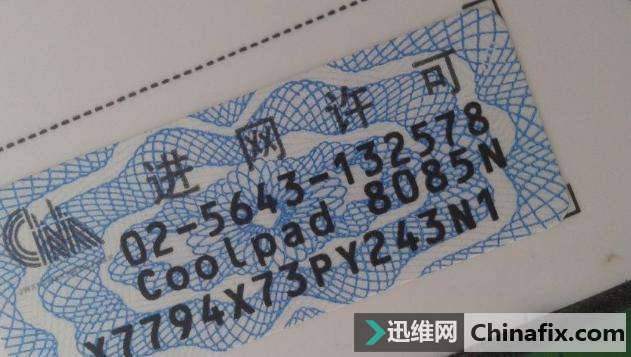 进网许可
CNA
02-5643-132578
Coolpad 8085N
X7794X73PY243N1
迅维网 Chinafix.com